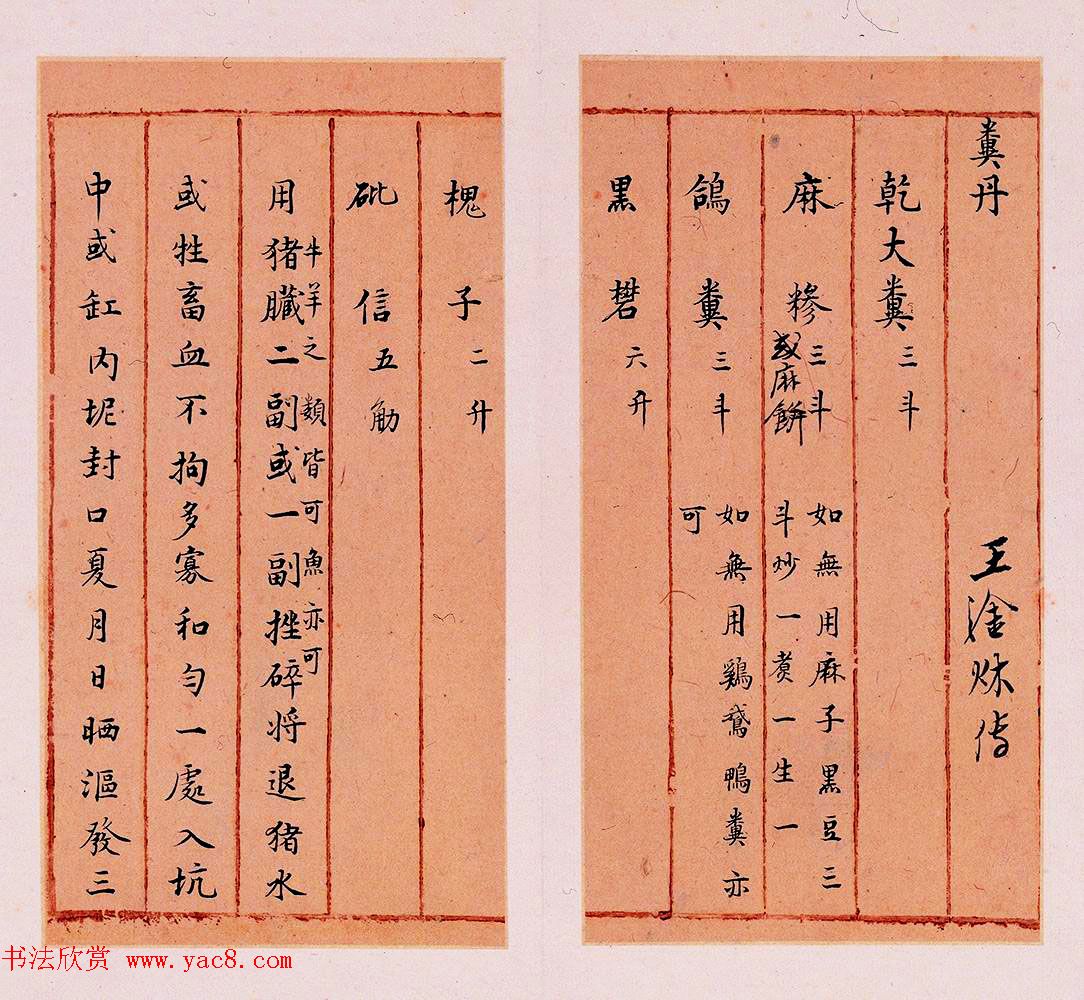 糞丹 王淦秌傳
乾大糞三斗
麻糝三斗 如無用麻子黑豆三
或麻餅 斗炒一煑一生一
鴿糞三斗 如無用鷄鵞鴨糞亦
可
黑礬六升
槐子二升
砒信五觔
牛羊之類皆可魚亦可
用猪臟二副或一副挫碎将退猪水
或牲畜血不拘多寡和匀一處入坑
中或缸内坭封口夏月日晒漚發三
书法欣赏 www.yac8.com